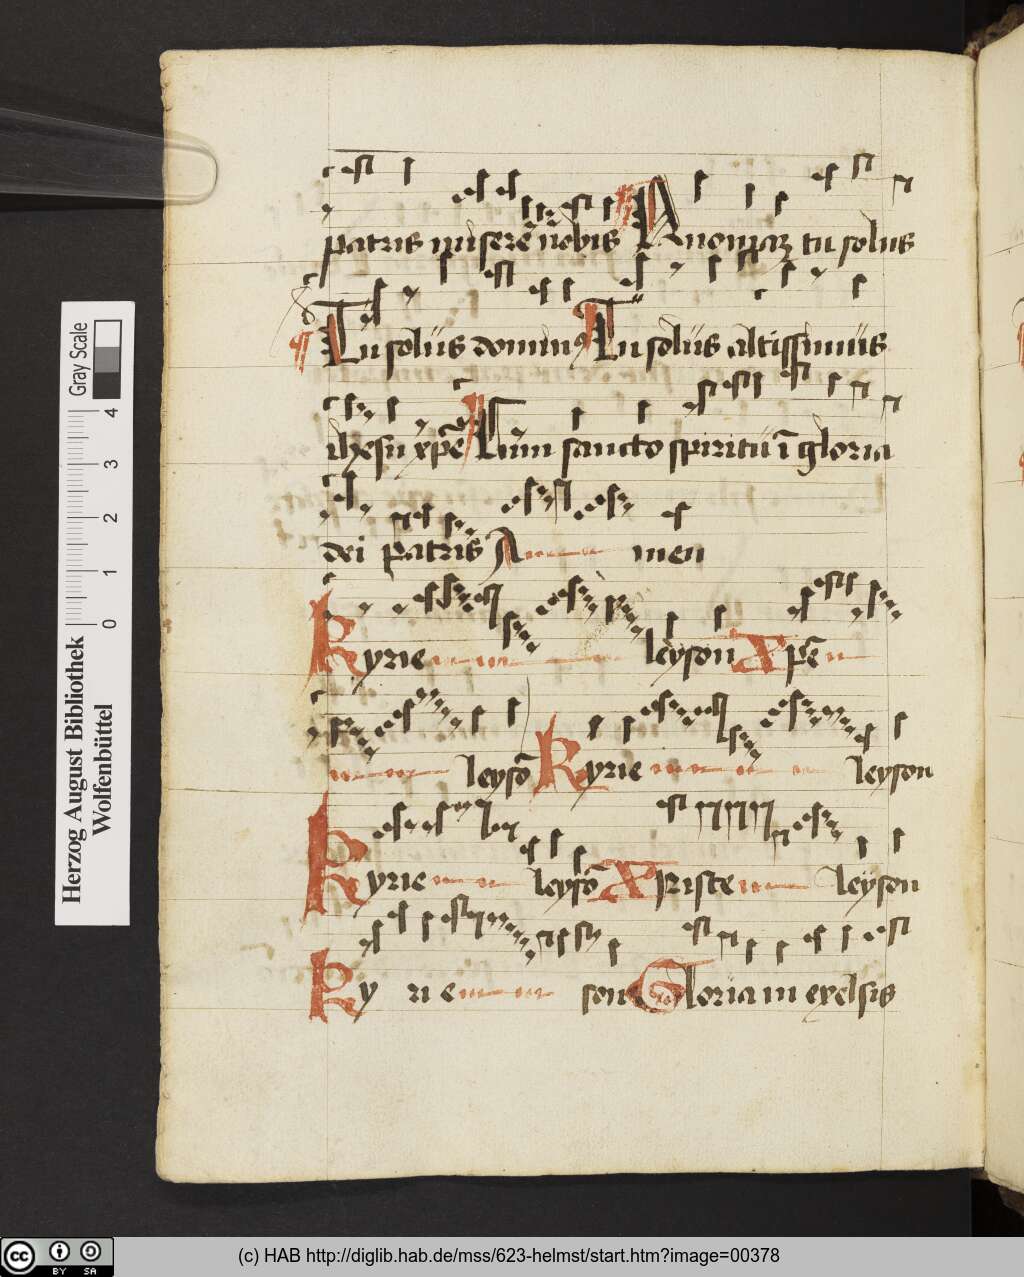 patris miserē nobis Quoniaʒ tu solus
Tu solus dominꝰ Tu solus altissimus
ihesu xp̄e Cum sancto spiritu ī gloria
dei patris A men
Kyrie leyson Xp̄e
leysō Kyrie leyson
Kyrie leysō Xpriste leyson
Ky ri e son Gloria in exelsis
Herzog August Bibliothek
Wolfenbüttel
Gray Scale
0 1 2 3 4
cc BY SA
(c) HAB http://diglib.hab.de/mss/623-helmst/start.htm?image=00378